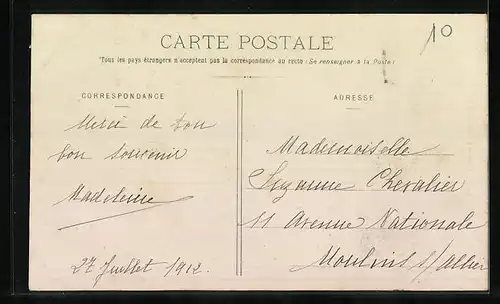 CARTE POSTALE
10
"Tous les pays étrangers n'acceptent pas la correspondance au recto (Se renseigner à la Poste)
CORRESPONDANCE
ADRESSE
Merci de ton
bon souvenir
Madeleine
27 Juillet 1912.
Mademoiselle
Suzanne Chevalier
11 Avenue Nationale
Moulins s/allier